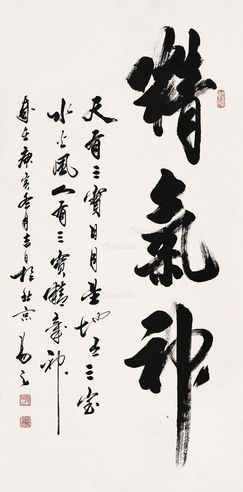 精氣神
天有三寶日月星地有三宝
水火風人有三寶精氣神
歲在庚寅月吉日於北京